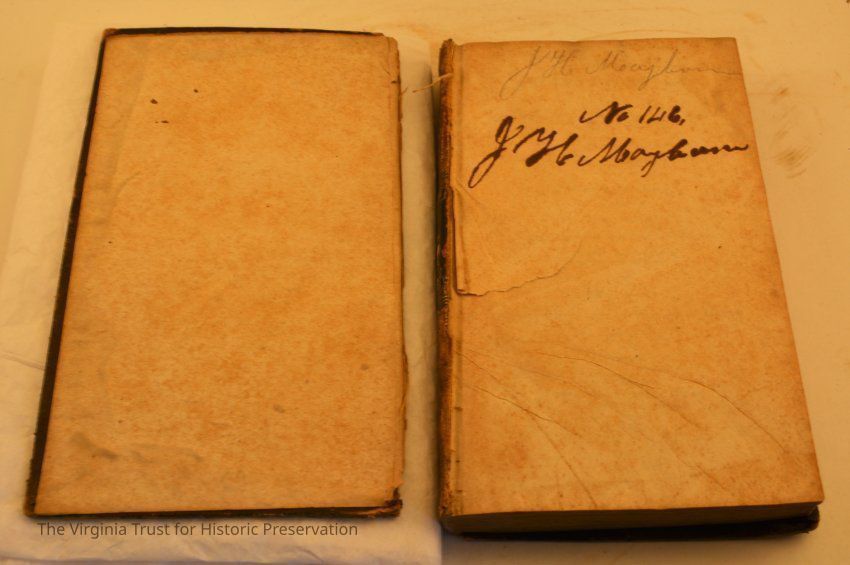 J H Mayhorn
No 146,
J H Mayhorn
The Virginia Trust for Historic Preservation